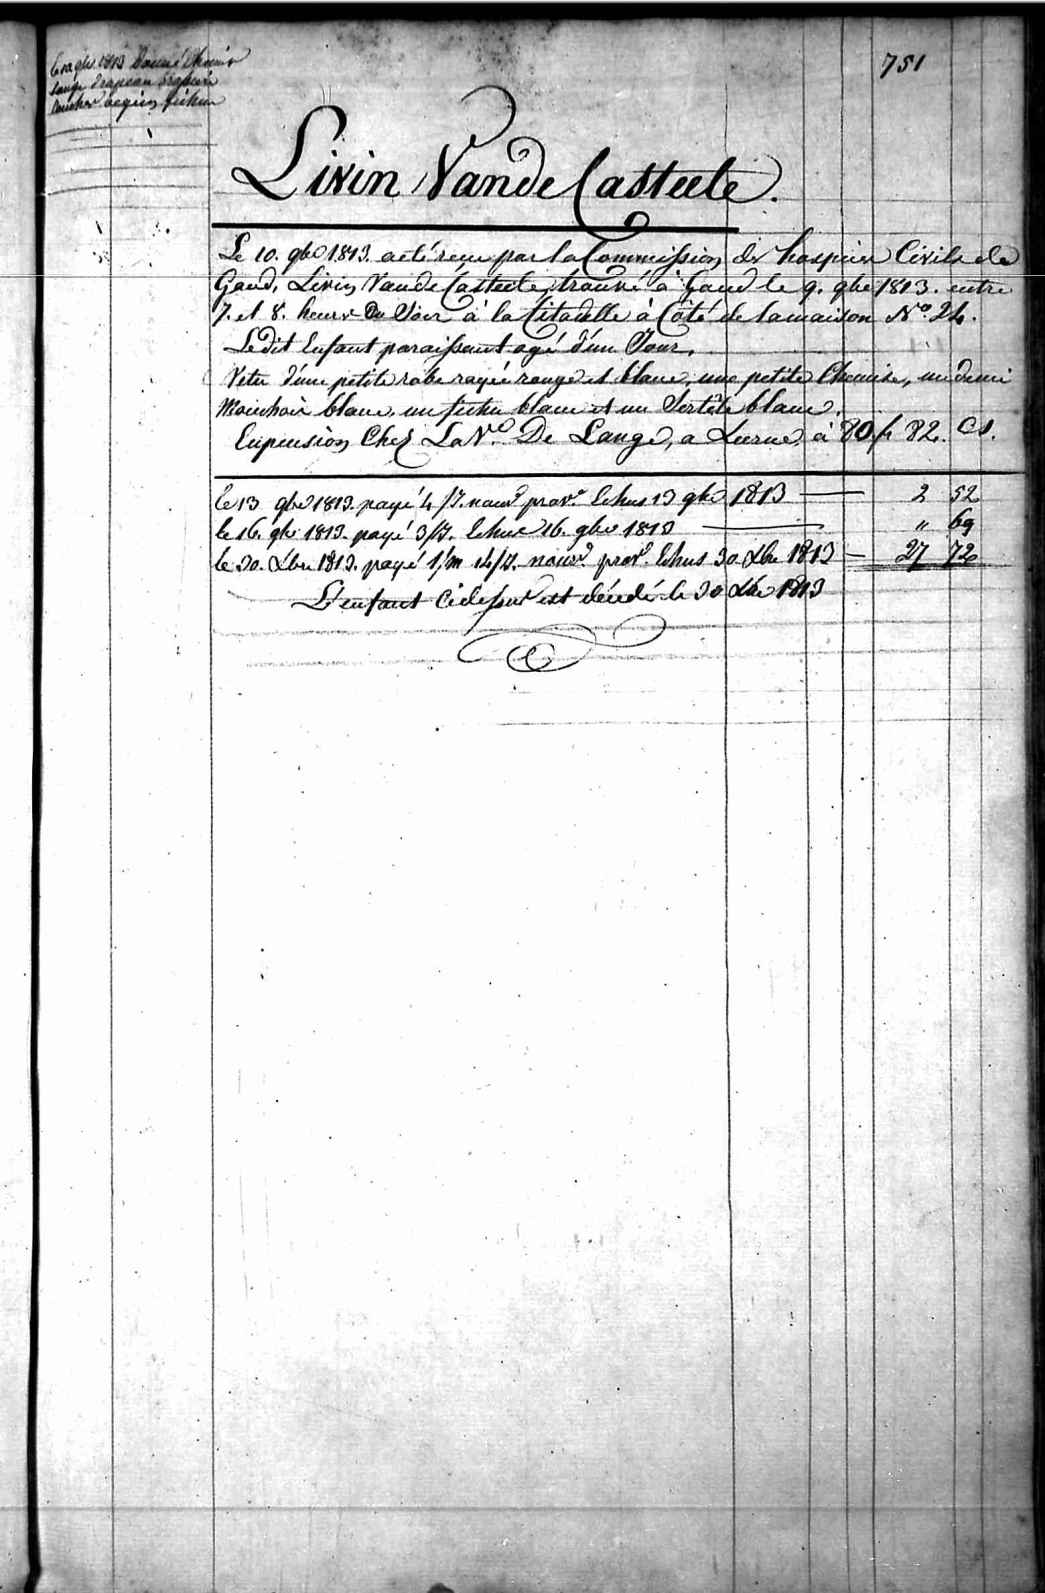 Le 10 9bre 1813 Donné Chemise
lange Drapeau Brassiere
Couches beguin fichu
751
Livin Vande Casteele.
Le 10. 9bre 1813. a été reçu par la Commission des hospices Civils de
Gand, Livin Vande Casteele, trouvé à Gand le 9. 9bre 1813. entre
7. et 8. heures Du Soir à la Citadelle à Côté de la maison No 24.
Ledit Enfant paraissant agé d'un Jour.
Vetu d'une petite robe rayée rouge et blanc, une petite Chemise, un demi
Mouchoir blanc, un fichu blanc et un Sertête blanc.
En pension Chez La Ve De Lange, a Laerne à 80 f 82. Cs.
le 13 9bre 1813. payé 4/J. nourre prove. Echus 13 9bre 1813 — 2 52
le 16. 9bre 1813. payé 3/J. Echus 16. 9bre 1813 — " 69
le 30. Xbre 1813. payé 1/m 14/J. nourre prove. Echus 30 Xbre 1813 — 27 72
L'enfant Cidessus est décédé le 30 Xbre 1813